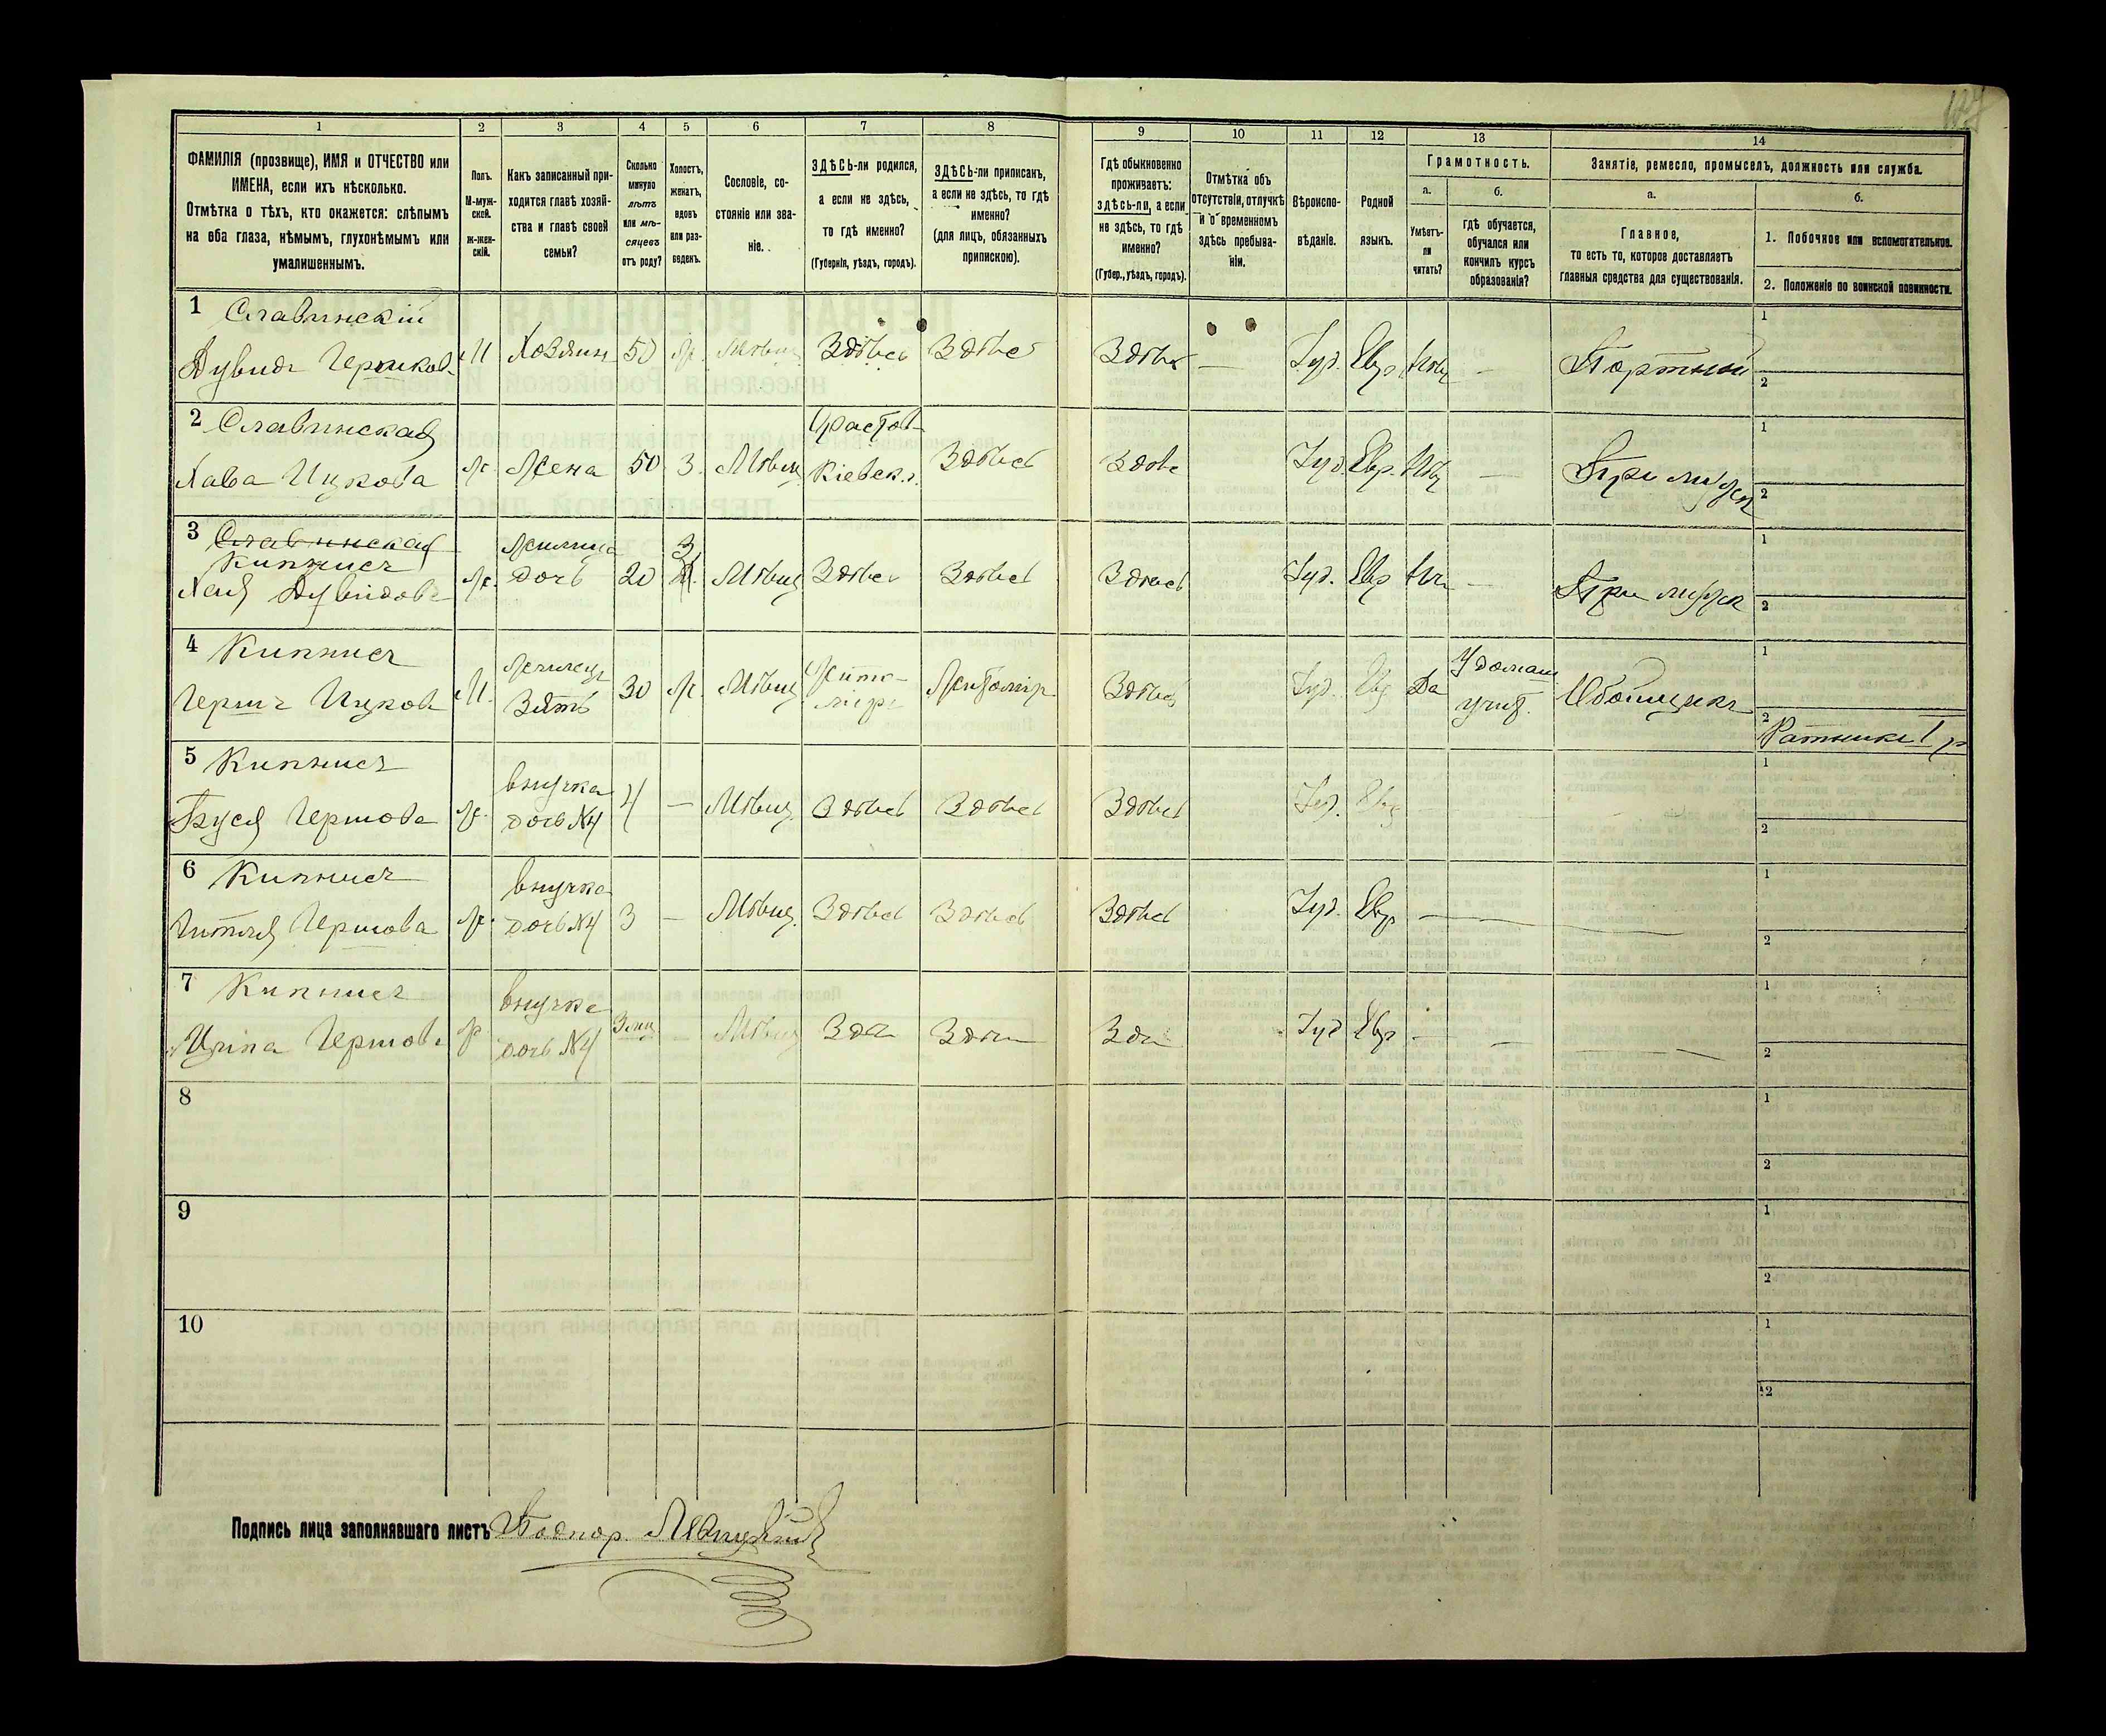 1 2 3 4 5 6 7 8 9 10 11 12 13 14
ФАМИЛІЯ (прозвище), ИМЯ и ОТЧЕСТВО или
ИМЕНА, если ихъ нѣсколько.
Отмѣтка о тѣхъ, кто окажется: слѣпымъ
на оба глаза, нѣмымъ, глухонѣмымъ или
умалишеннымъ.
Полъ.
М-муж-
ской.
ж-жен-
скій.
Какъ записанный при-
ходится главѣ хозяй-
ства и главѣ своей
семьи?
Сколько
минуло
лѣтъ
или мѣ-
сяцевъ
отъ роду?
Холостъ,
женатъ,
вдовъ
или раз-
веденъ.
Сословіе, со-
стояніе или зва-
ніе.
ЗДѢСЬ-ли родился,
а если не здѣсь,
то гдѣ именно?
(Губернія, уѣздъ, городъ).
ЗДѢСЬ-ли приписанъ,
а если не здѣсь, то гдѣ
именно?
(для лицъ, обязанныхъ
припискою).
Гдѣ обыкновенно
проживаетъ:
здѣсь-ли, а если
не здѣсь, то гдѣ
именно?
(Губер., уѣздъ, городъ).
Отмѣтка объ
отсутствіи, отлучкѣ
и о временномъ
здѣсь пребыва-
ніи.
Вѣроиспо-
вѣданіе.
Родной
языкъ.
Грамотность.
а.
Умѣетъ-
ли
читать?
б.
гдѣ обучается,
обучался или
кончилъ курсъ
образованія?
Занятіе, ремесло, промыселъ, должность или служба.
а.
Главное,
то есть то, которое доставляетъ
главныя средства для существованія.
б.
1. Побочное или вспомогательное.
2. Положеніе по воинской повинности.
1 Славинскій
Дувидъ Гершков. М Хозяин 50 Ж. Мѣщ Здѣсь Здѣсь Здѣсь — Іуд. Евр. Нѣт — Портной
1
2
2 Славинская
Хава Ицкова Ж. Жена 50 З. Мѣщ Кіевск. Здѣсь Здѣс Іуд. Евр. Нѣт — При муж
1
2
3 Славинская
Кипнисъ
Хая Дувидова Ж. Жилица
дочь 20 З Мѣщ Здѣсь Здѣсь Здѣсь Іуд. Евр — При муж
1
2
4 Кипнисъ
Гершъ Ицков М. Жилец
Зять 30 Ж. Мѣщ Жито-
міръ Житомір Здѣсь Іуд. Евр Да У домаш
учит. Обойщикъ
1
2 Ратникъ 1 р
5 Кипнисъ
Буся Гершова Ж. внучка
дочь №4 4 — Мѣщ. Здѣсь Здѣсь Здѣсь Іуд. Евр
1
2
6 Кипнисъ
Гитля Гершова Ж. внучка
дочь №4 3 — Мѣщ. Здѣсь Здѣсь Здѣсь Іуд. Евр —
1
2
7 Кипнисъ
Гершова Ж внучка
дочь №4 3 мц — Мѣщ Здѣ Здѣс Здѣ Іуд Евр —
1
2
8
1
2
9
1
2
10
1
2
Подпись лица заполнявшаго листъ Подпор.